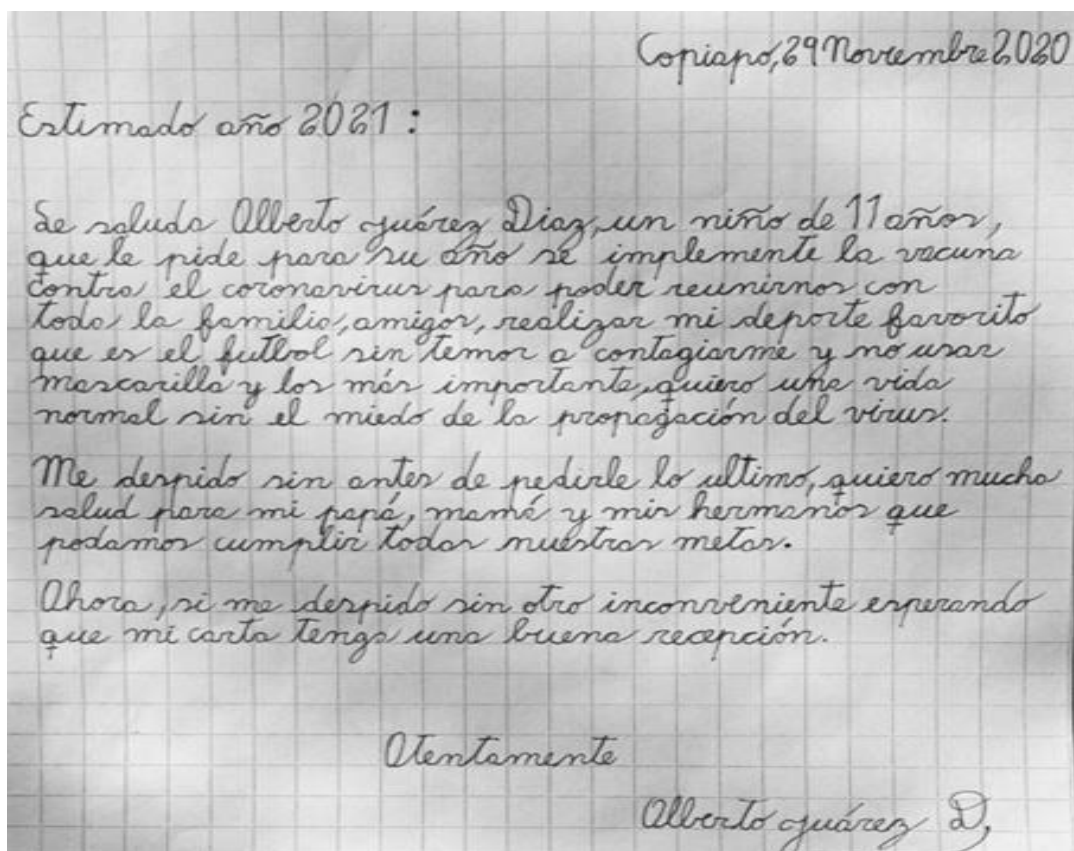 Copiapó, 29 Noviembre 2020
Estimado año 2021 :
Se saluda Alberto Juárez Diaz, un niño de 11 años,
que le pide para su año se implemente la vacuna
contra el coronavirus para poder reunirnos con
toda la familia, amigos, realizar mi deporte favorito
que es el futbol sin temor a contagiarme y no usar
mascarilla y los más importante, quiero una vida
normal sin el miedo de la propagación del virus.
Me despido sin antes de pedirle lo ultimo, quiero mucha
salud para mi papá, mamá y mis hermanos que
podamos cumplir todas nuestras metas.
Ahora, si me despido sin otro inconveniente esperando
que mi carta tenga una buena recepción.
Atentamente
Alberto Juárez D,